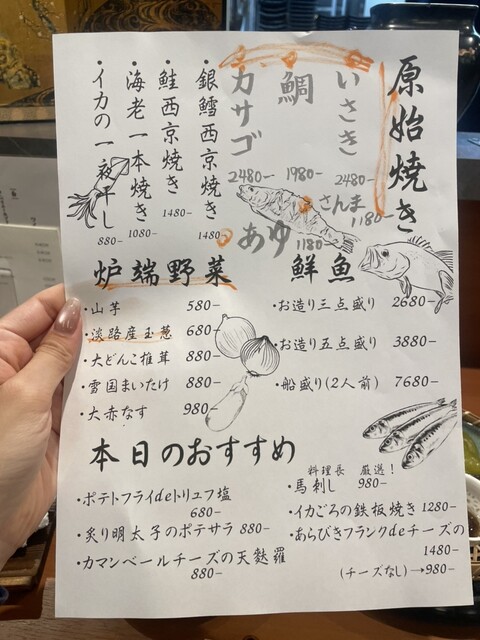 原始焼き
いさき
2480-
鯛
1980-
カサゴ
2480-
さんま
1180-
あゆ
1180-
・銀鱈西京焼き
1480-
・鮭西京焼き
1480-
・海老一本焼き
1080-
・イカの一夜干し
880-
炉端野菜
・山芋 580-
・淡路産玉葱 680-
・大どんこ椎茸 880-
・雪国まいたけ 880-
・大赤なす 980-
鮮魚
・お造り三点盛り 2680-
・お造り五点盛り 3880-
・船盛り(2人前) 7680-
本日のおすすめ
・ポテトフライdeトリュフ塩
680-
・炙り明太子のポテサラ 880-
・カマンベールチーズの天麩羅
880-
料理長 厳選!
・馬刺し 980-
・イカごろの鉄板焼き 1280-
・あらびきフランクdeチーズの
1480-
(チーズなし)→980-